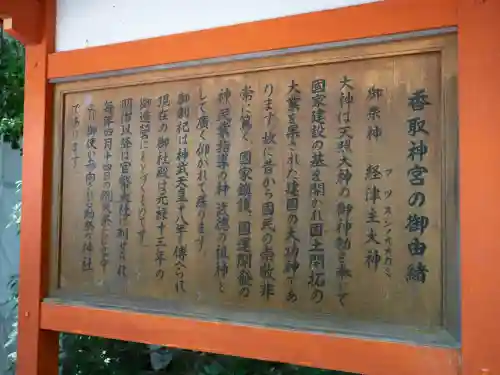 香取神宮の御由緒
御祭神 経津主大神
フツヌシノオオカミ
大神は天照大神の御神勅を奉じて
国家建設の基を開かれ国土開拓の
大業を果された建国の大功神であ
ります 故に昔から国民の崇敬非
常に篤く 国家鎮護、国運開発の
神 民業指導の神 の祖神と
して広く仰がれて居ります
御創祀は神武天皇十八年と伝へられ
現在の御社殿は元禄十三年の
御造営にかゝるものです
明治以後は官幣大社に列せられ
毎年四月十四日の例大祭には
御使が参向される勅祭の神社
であります